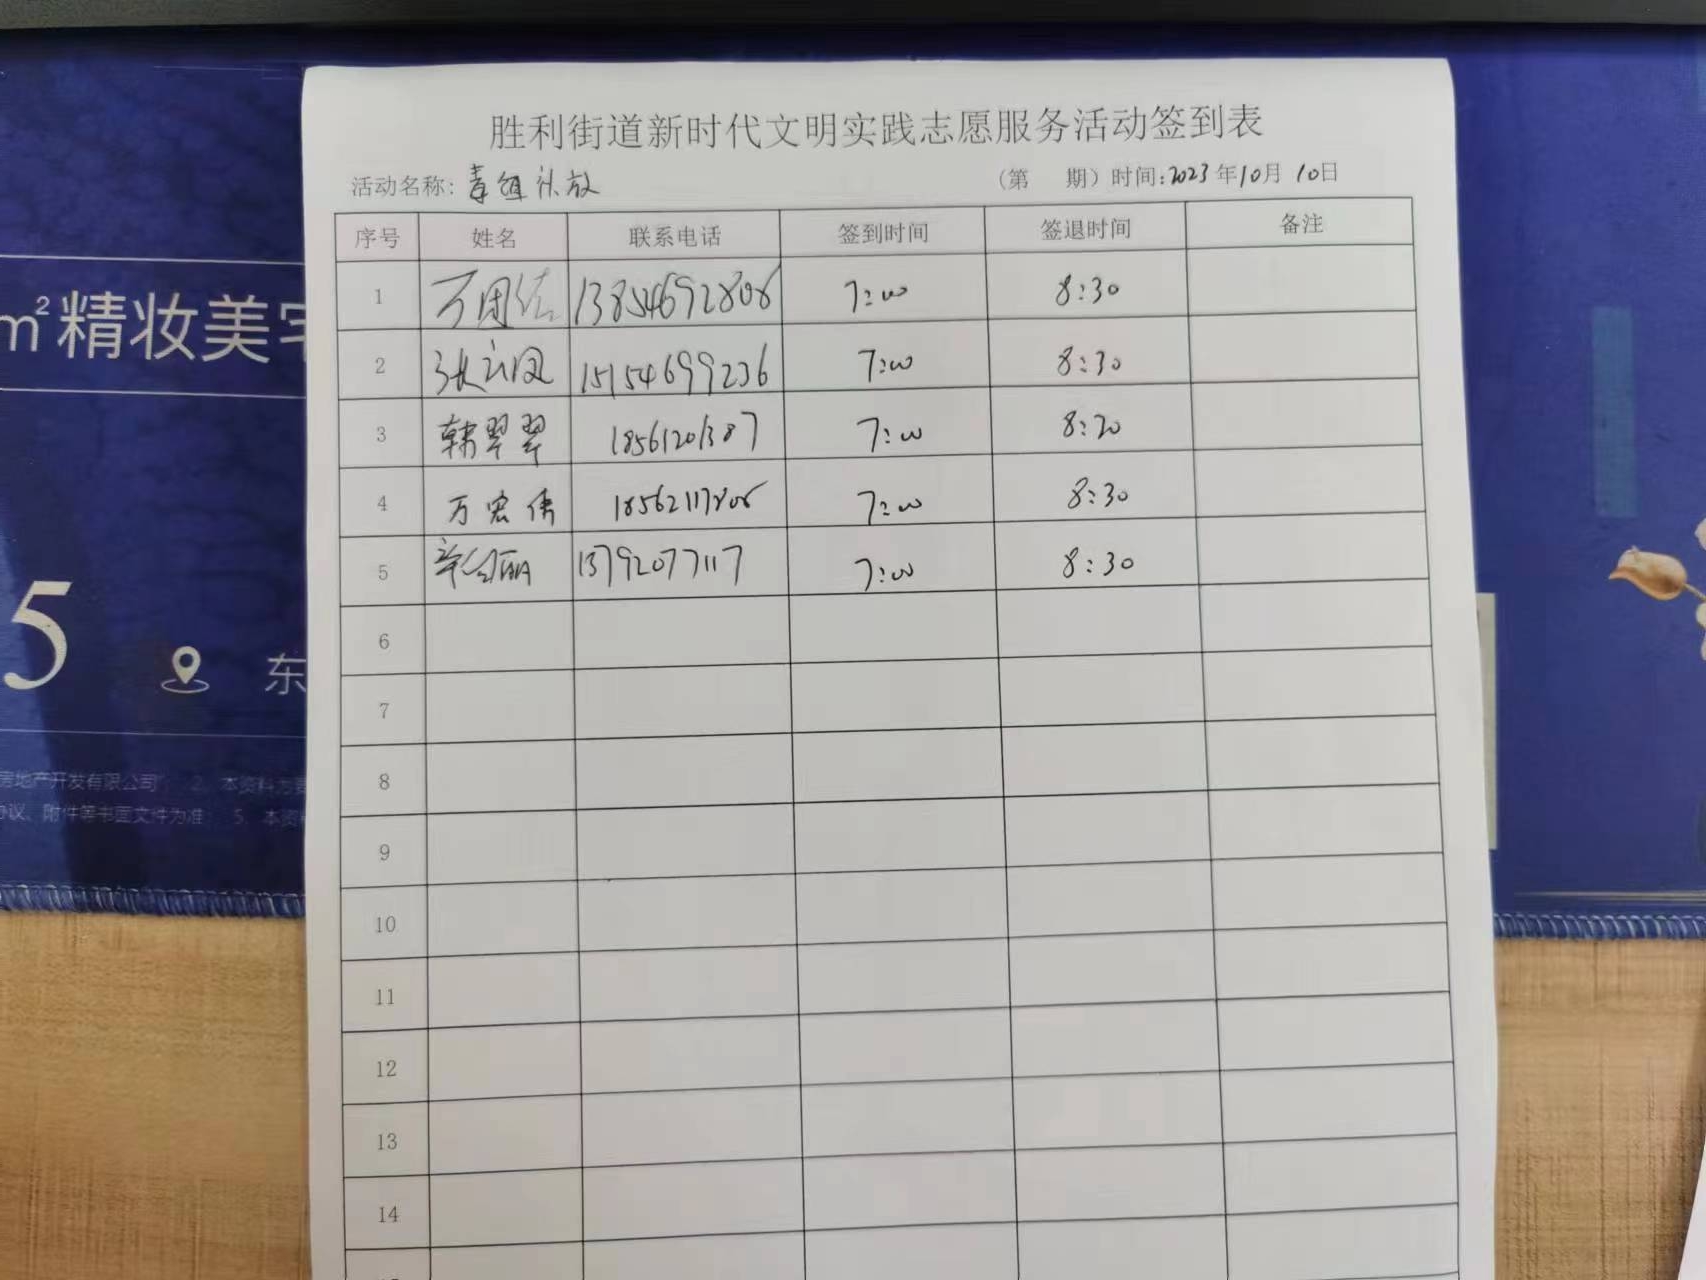 胜利街道新时代文明实践志愿服务活动签到表
活动名称: 毒饵投放 (第 期) 时间: 2023年10月10日
序号 姓名 联系电话 签到时间 签退时间 备注
1 万团结 13854692806 7:00 8:30
2 张云凤 15154699236 7:00 8:30
3 韩翠翠 18561201387 7:00 8:30
4 万宏伟 18562117806 7:00 8:30
5 13792077117 7:00 8:30
6
7
8
9
10
11
12
13
14
m²精妆美宅
5 东
房地产开发有限公司 2、本资料为要
协议、附件等书面文件为准 5、本资料